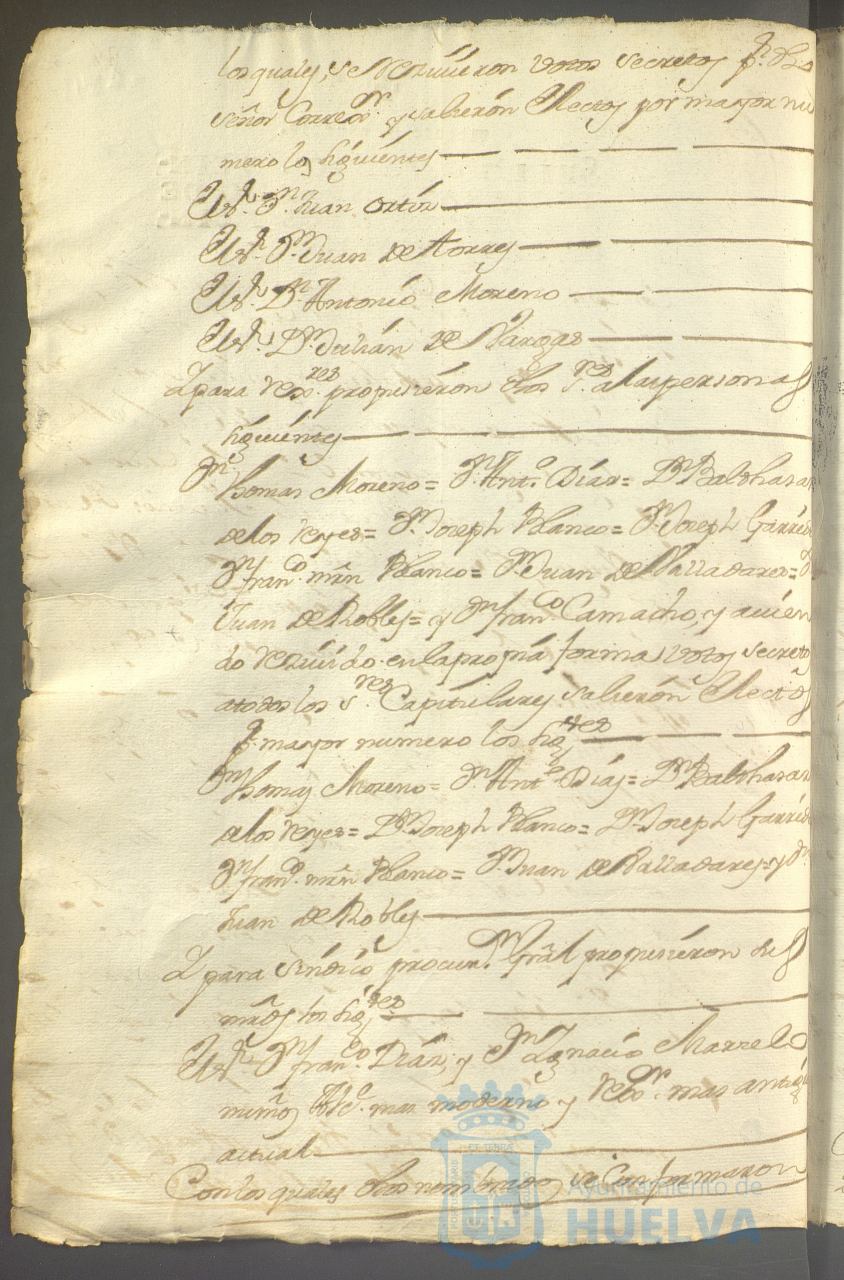 los quales, se Reciuieron votos secretos pr. dho
señor Corregr. y salieron Electos por mayor nu
mero los siguientes
Dn. Juan Ortiz
Dn. Juan de Torres
Dn. Antonio Moreno
Dn. Julián de Vargas
Y para Rexres. propusieron dhos sres. a las personas
siguientes
Dn. Thomas Moreno = Dn. Anto. Díaz = Dn. Balthasar
de los Reyes = Dn. Joseph Blanco = Dn. Joseph Garrid
Dn. franco. mrn Blanco = Dn. Juan de Valladares = D
Juan de Robles = y Dn. franco. Camacho, y auien
do Reciuido en la propia forma votos secretos
a todos los sres. Capitulares salieron Electos
pr. mayor numero los sigtes
Dn. Thomas Moreno = Dn. Anto. Díaz = Dn. Balthasar
de los Reyes = Dn. Joseph Blanco = Dn. Joseph Garrid
Dn. franco. mrn Blanco = Dn. Juan de Valladares = y Dn.
Juan de Robles
Y para Síndico procur. Gral propusieron
los sigtes
Dn. franco. Díaz, y Dn. Ygnacio Marcelo
Alce. mas moderno y Rexor. mas antig
actual
Con los quales dhos nombrados, se Conformaron
Ayuntamiento de
HUELVA